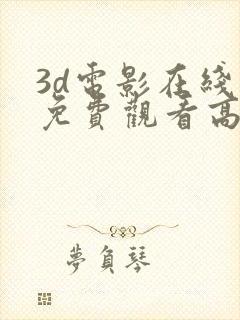 3d電影在綫
免費觀看高
夢負琴